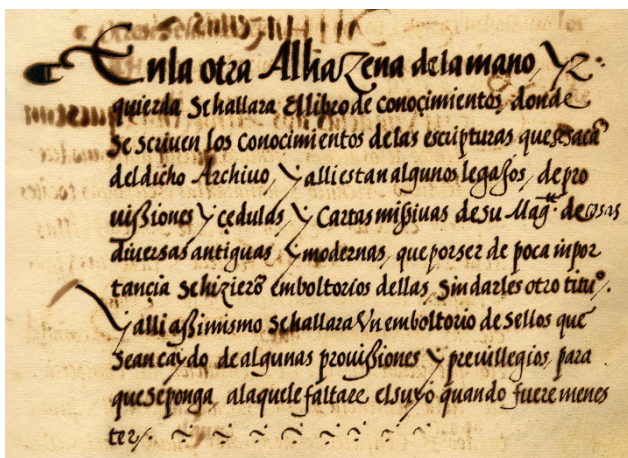 En la otra Alhazena de la mano yz
quierda se hallara El libro de conoçimientos, donde
se scriven los conocimientos de las escripturas que se sacā
del dicho Archiuo, y alli estan algunos legajos, de pro
uissiones y çedulas y Cartas missiuas de su Magᵗ. de cosas
diuersas antiguas y modernas, que por ser de poca inpor
tançia se hizierō emboltorios dellas, sin darles otro titu°.
y alli assimismo se hallara Vn emboltorio de sellos que
sean caydo de algunas prouissiones y preuillegios, para
que se ponga, alaquele faltare el suyo quando fuere menes
ter/.